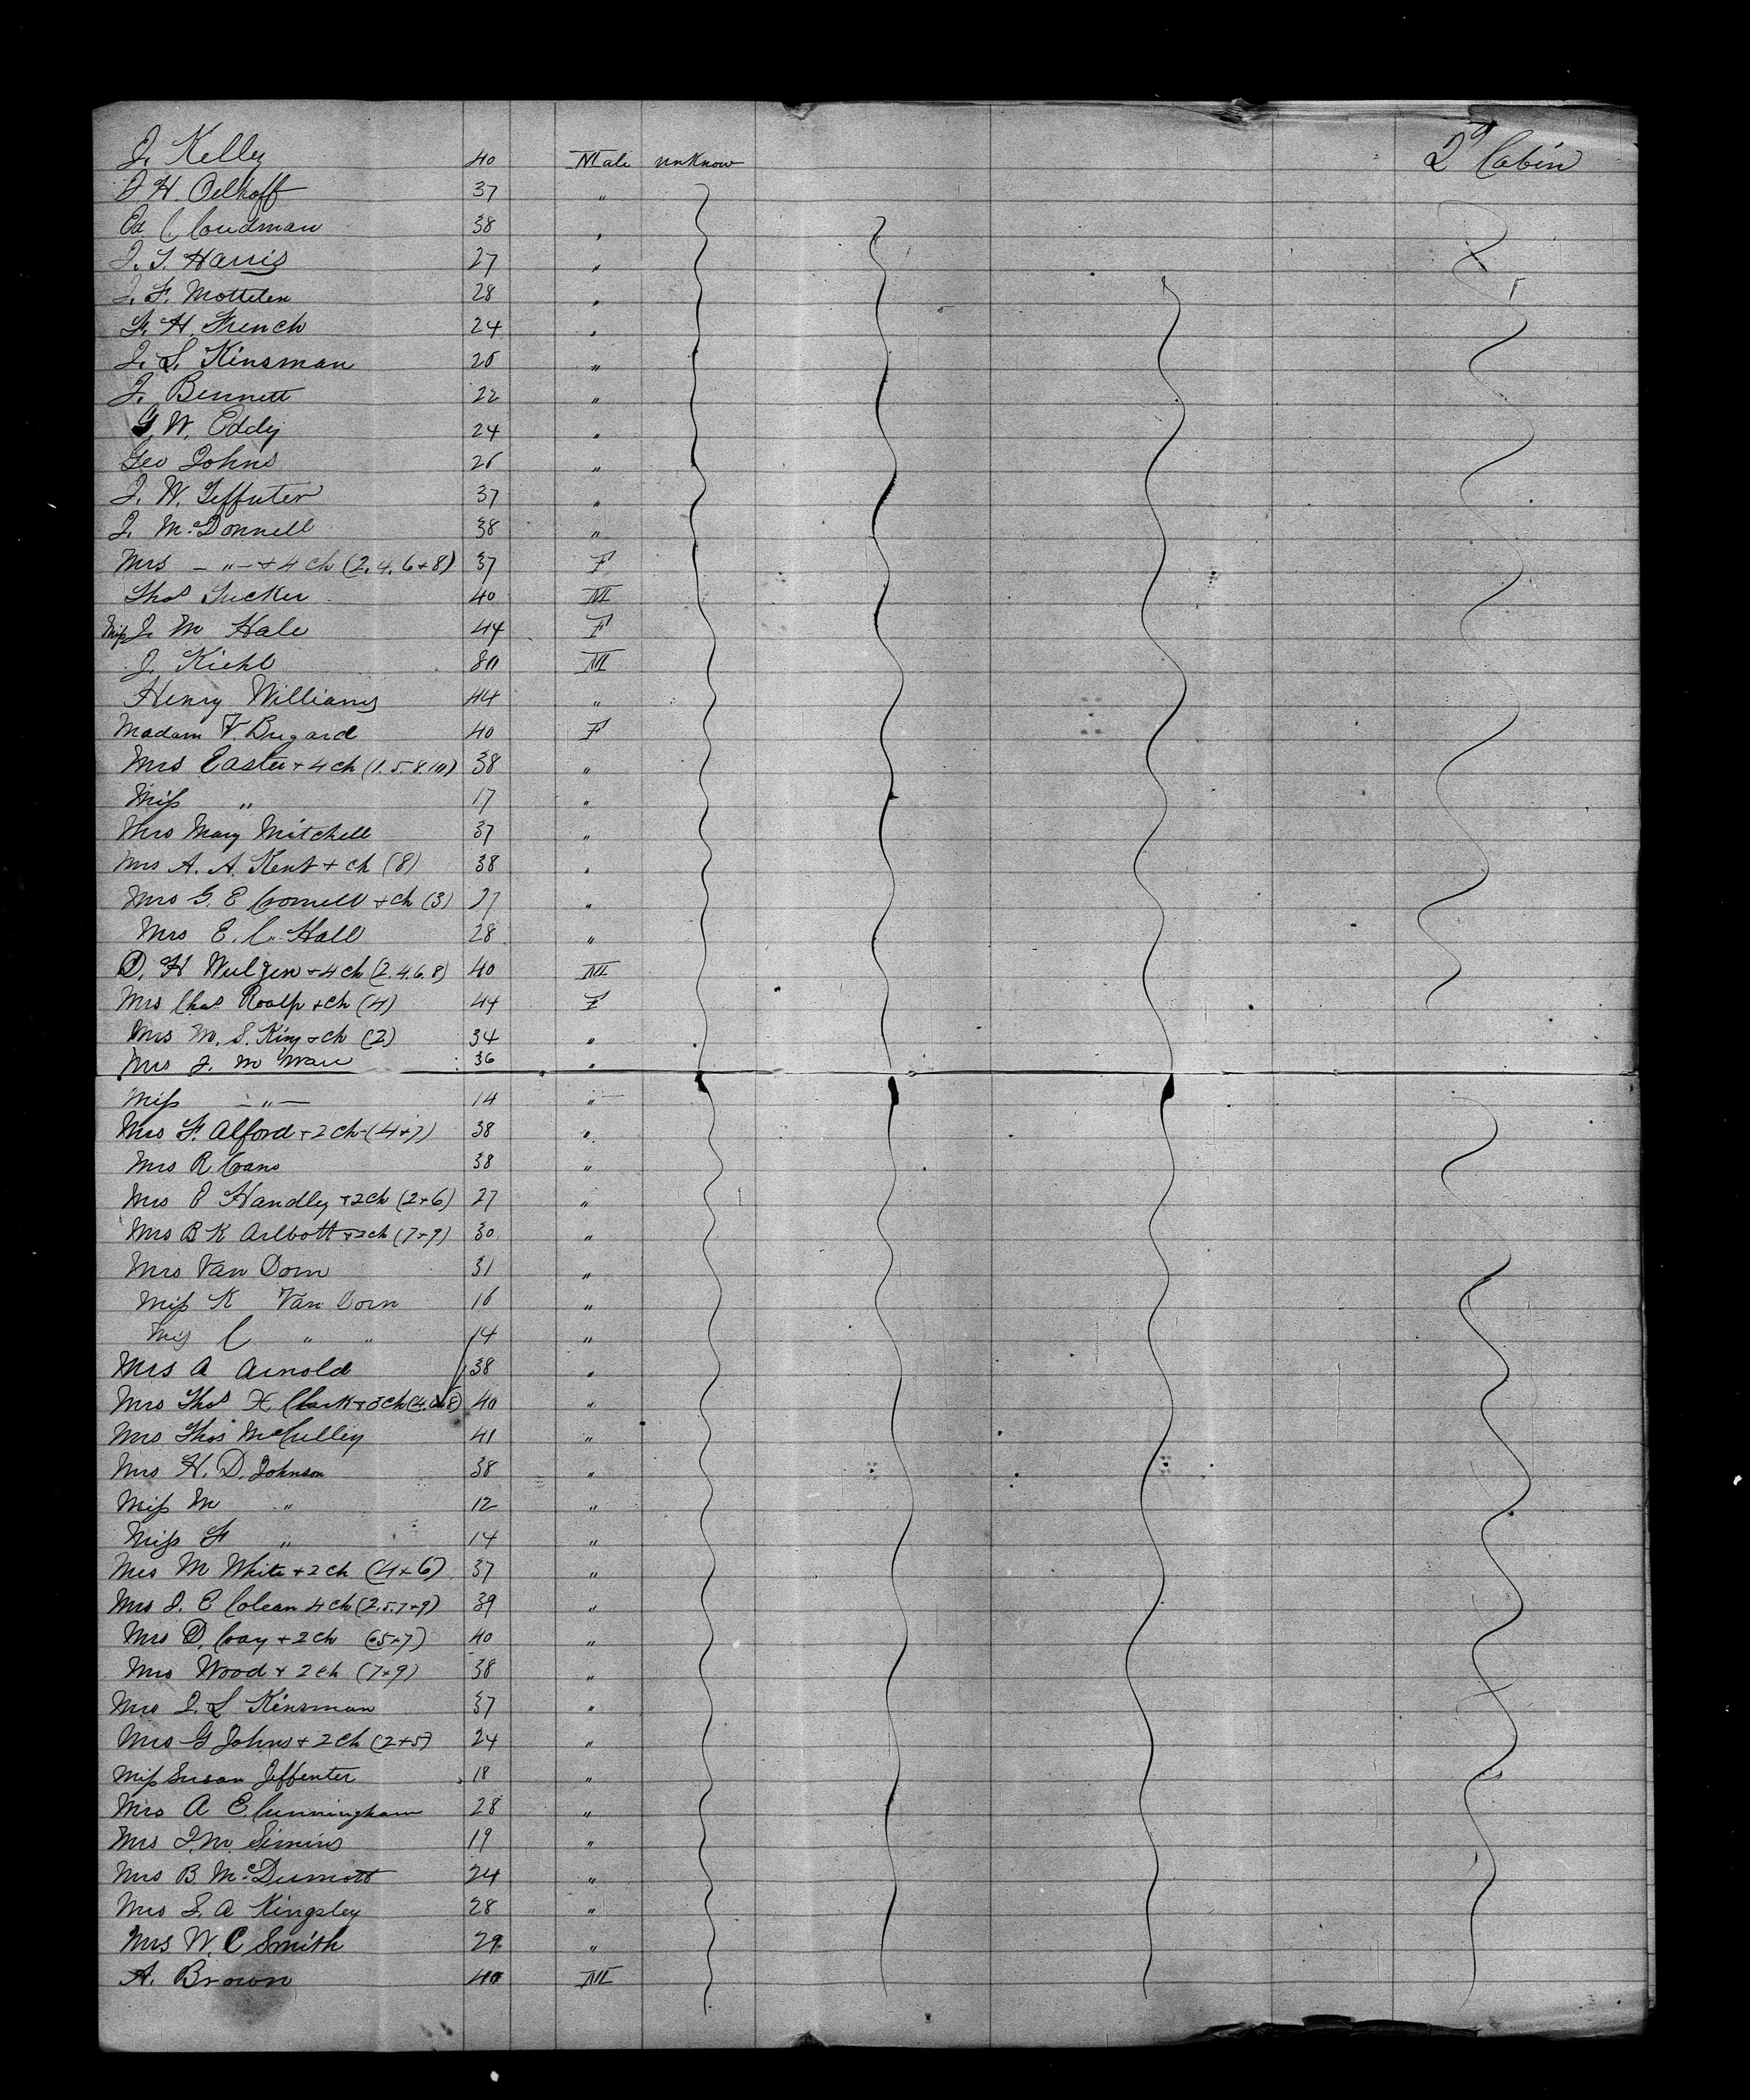 J. Kelly 40 Male unknow 2d Cabin
J H. Oelhoff 37 "
Ed. C. Coudman 38 "
J. T. Harris 27 "
J. F. 28 "
F. H. French 24 "
J. S. Kinsman 26 "
J. Bennett 22 "
G. W. Eddy 24 "
Geo Johns 26 "
J. W. 37 "
J. McDonnell 38 "
Mrs - " - + 4 ch (2. 4. 6 + 8) 37 F
Thos Tucker 40 M
Miss J. M Hale 44 F
J. Kiehl 80 M
Henry Williams 44 "
Madam V. Bugard 40 F
Mrs Easter + 4 ch (1. 5. 8. 10) 38 "
Miss " 17 "
Mrs Mary Mitchell 37 "
Mrs A. A. Kent + ch (8) 38 "
Mrs G. E Cornell + ch (3) 27 "
Mrs E. C. Hall 28 "
D. H + 4 ch (2. 4. 6. 8) 40 M
Mrs Chas Roalp + ch (4) 44 F
Mrs M. S. King + ch (2) 34 "
Mrs J. M 36 "
Miss - " - 14 "
Mrs F. Alford + 2 ch (4 + 7) 38 "
Mrs R. 38 "
Mrs Handley + 2 ch (2 + 6) 27 "
Mrs B K Arlbott + 2 ch (7 + 9) 30 "
Mrs Van Dorn 31 "
Miss K Van Dorn 16 "
Miss C " " 14 "
Mrs A Arnold 38 "
Mrs Thos H Clark + 3 ch (4. 6. 8) 40 "
Mrs Thos McCulley 41 "
Mrs H. D. Johnson 38 "
Miss M " 12 "
Miss F " 14 "
Mrs M White + 2 ch (4 + 6) 37 "
Mrs J. E Colean 4 ch (2. 5. 7 + 9) 39 "
Mrs D. + 2 ch (5 + 7) 40 "
Mrs Wood + 2 ch (7 + 9) 38 "
Mrs J. S Kinsman 37 "
Mrs G Johns + 2 ch (2 + 5) 24 "
Miss Susan 18 "
Mrs A E. Cunningham 28 "
Mrs J. M. Simins 19 "
Mrs B. McDermott 24 "
Mrs S. A Kingsley 28 "
Mrs W. C Smith 29 "
A. Brown 40 M